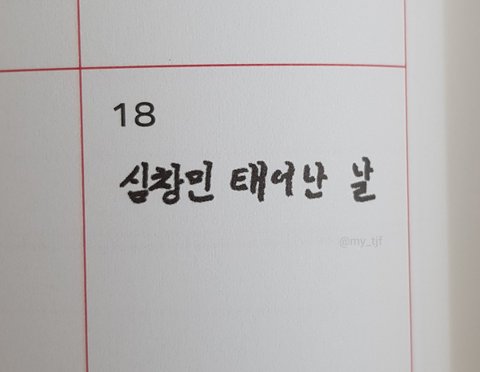 18
심창민 태어난 날
@my_tjf